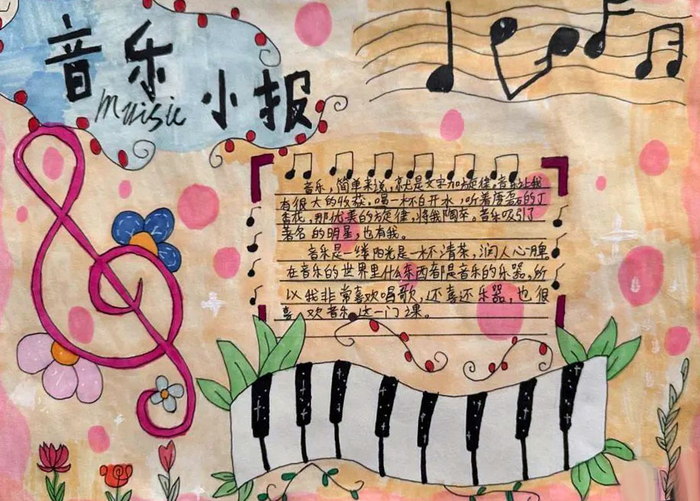 音乐
Muisic
小报
音乐,简单来说,就是文字加旋律,音乐让我
有很大的收获,喝一杯白开水,听着
那优美的旋律,将我陶卒,音乐吸引了
著名的明星,也有我。
音乐是一缕阳光是一杯清茶,润人心脾
在音乐的世界里什么东西都是音乐的乐器,所
以我非常喜欢唱歌,还喜还乐器,也很
喜欢音乐这一门课。